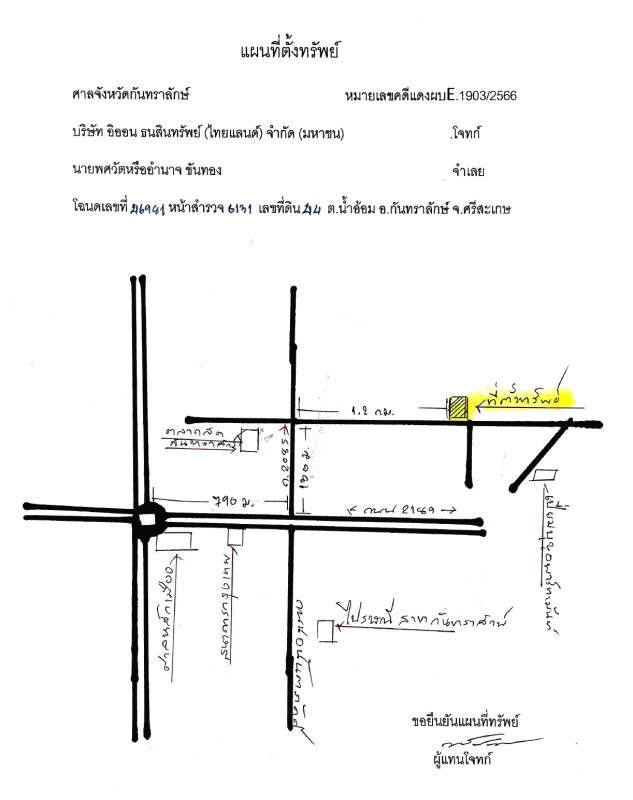 แผนที่ตั้งทรัพย์
ศาลจังหวัดกันทราลักษ์ หมายเลขคดีแดงผบE.1903/2566
บริษัท อิออน ธนสินทรัพย์ (ไทยแลนด์) จำกัด (มหาชน) .โจทก์
นายพศวัตหรืออำนาจ ขันทอง จำเลย
โฉนดเลขที่ 26941 หน้าสำรวจ 6131 เลขที่ดิน 24 ต.น้ำอ้อม อ.กันทราลักษ์ จ.ศรีสะเกษ
1.2 กม.
ที่ตั้งทรัพย์
ตลาดสด
กันทราลักษ์
ถ.2085
790 ม.
ถนน 2169
ศาลหลักเมือง
ธนาคารกรุงเทพ
ไปรษณีย์ สาขากันทราลักษ์
ขอยืนยันแผนที่ทรัพย์
ผู้แทนโจทก์